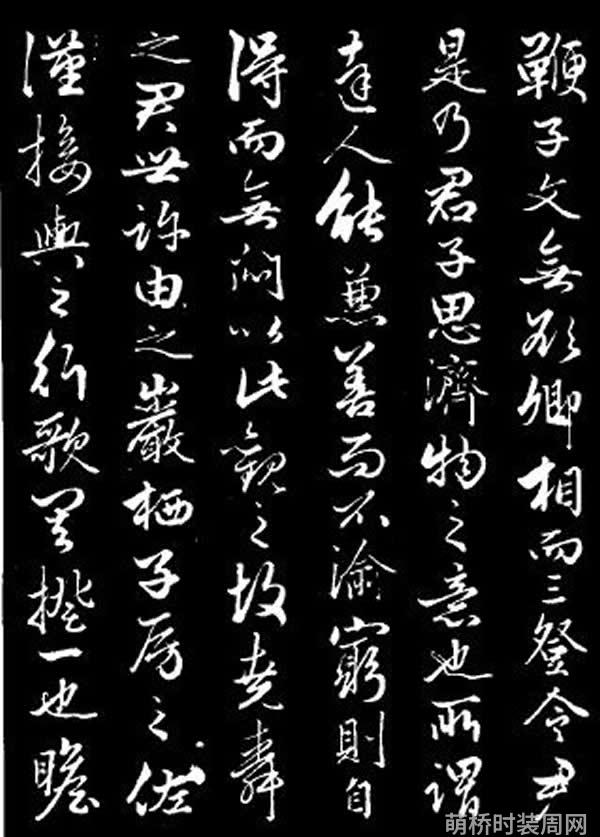 鞭子文無欲卿相而三登令尹
是乃君子思濟物之意也所謂
達人能兼善而不渝窮則自
得而無悶以此觀之故堯舜
之君世許由之巖栖子房之佐
漢接輿之行歌其揆一也瞻
萌桥时装周网